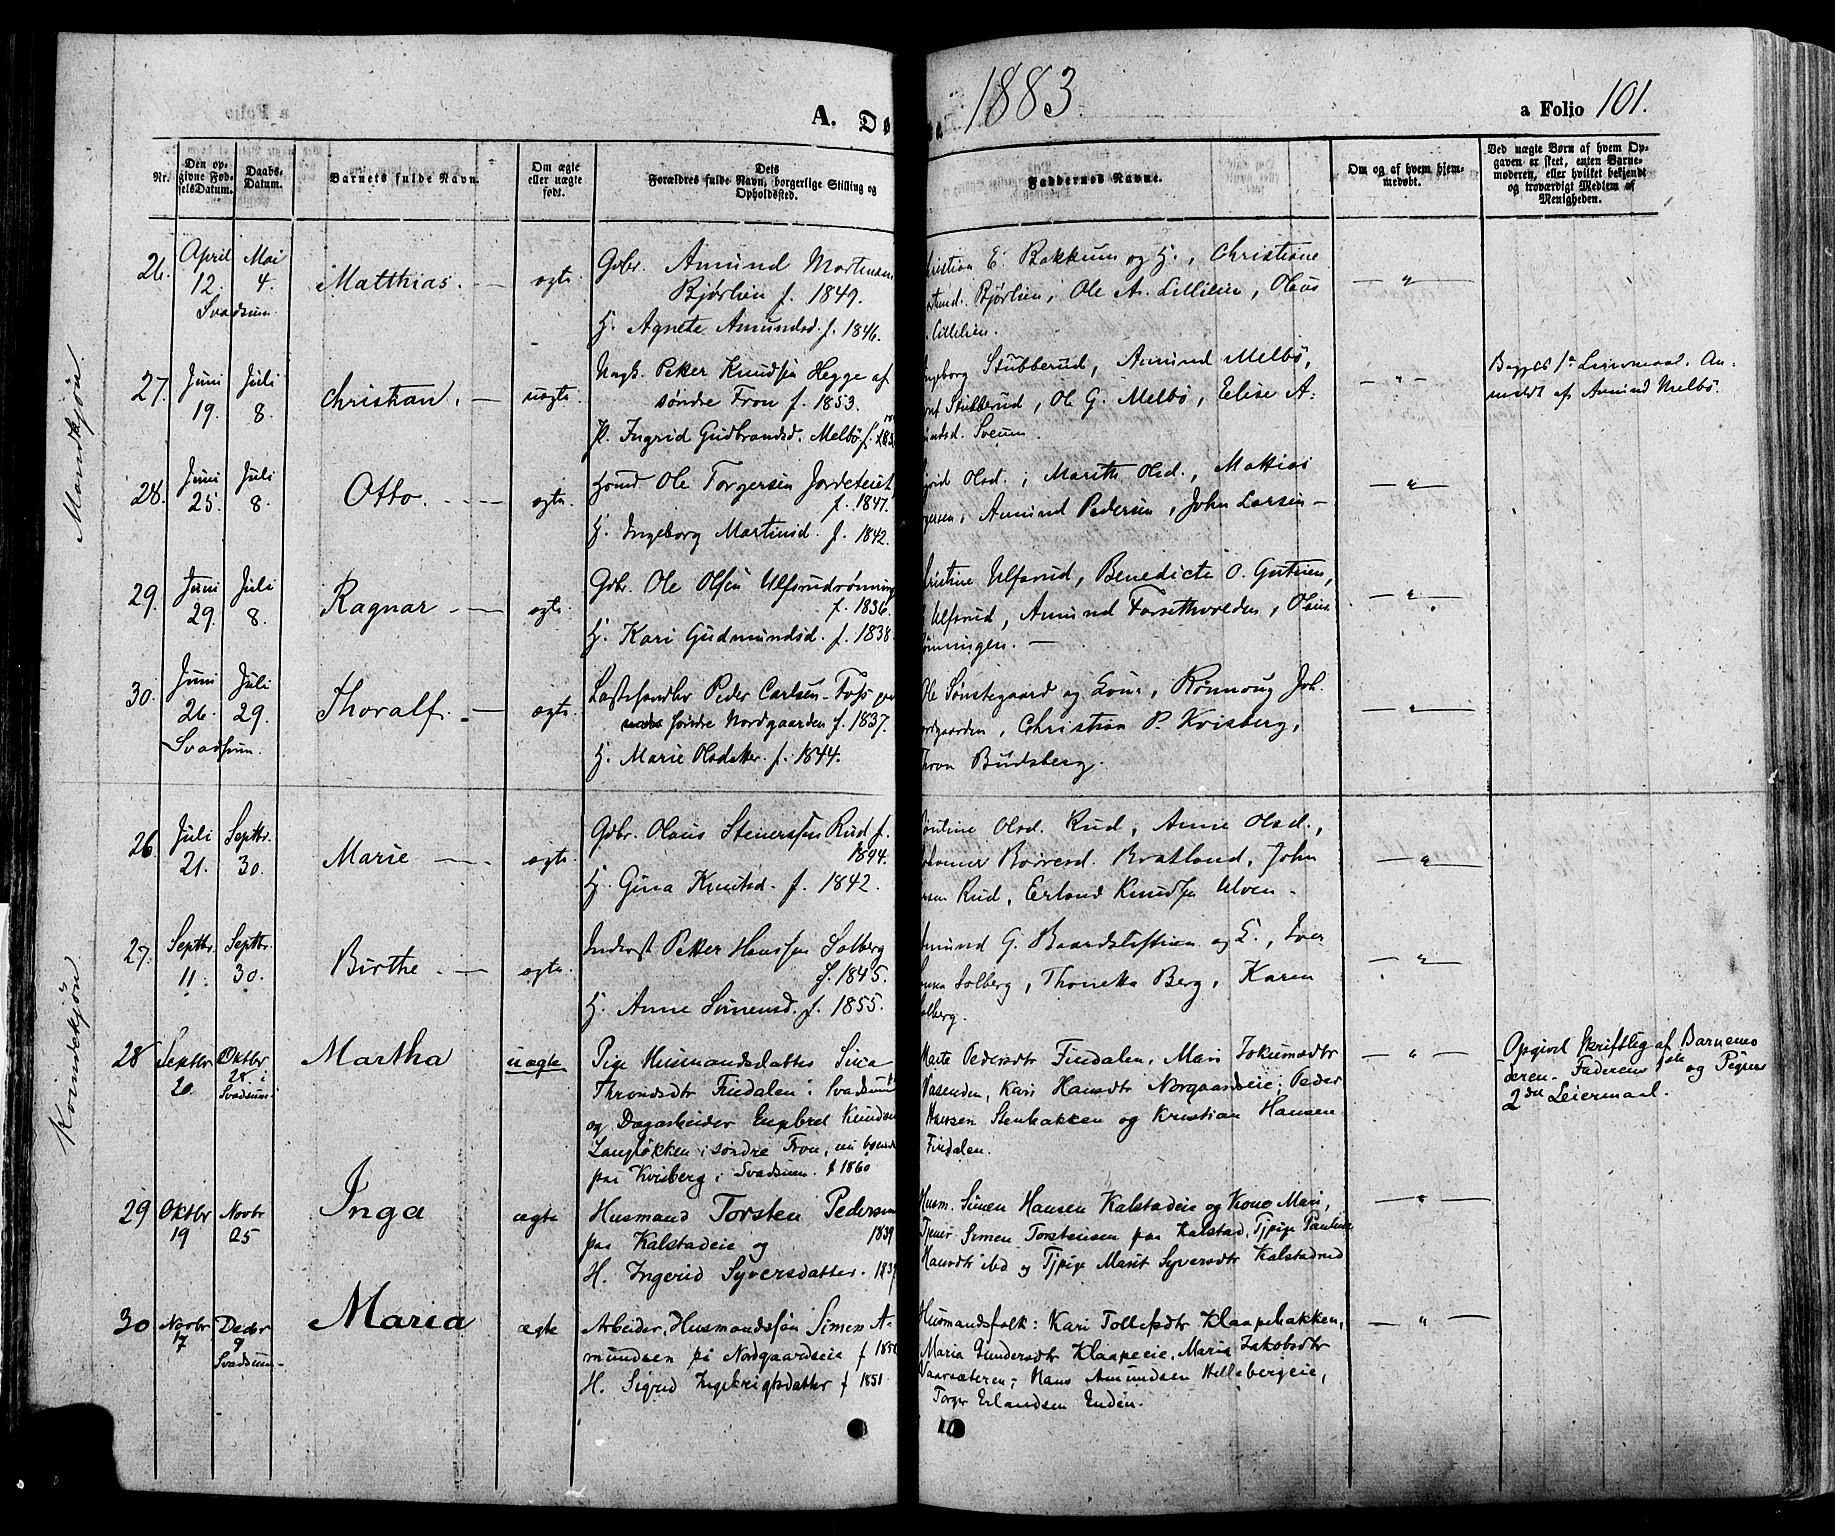 1883
A. Dø
a Folio 101.
Nr.
Den op-
givne Fød-
selsDatum.
Daabs-
Datum.
Barnets fulde Navn.
Om ægte
eller uægte
født.
Dets
Forældres fulde Navn, borgerlige Stilling og
Opholdssted.
Faddernes Navne.
Om og af hvem hjem-
medøbt.
Ved uægte Børn af hvem Op-
gaven er skeet, enten Barne-
moderen, eller hvilket bekjendt
og troværdigt Medlem af
Menigheden.
Mandkjøn.
26. April 12. Svadsum Mai 4. Matthias. — ægte
Gdbr. Amund Mortensen
Bjørlien f. 1849.
H. Agnete Amundsd. f. 1846.
ristian E. Bakkum og H., Christiane
Bjørlien, Ole A. Lillelien, Olaus
Lillelien.
— " —
27. Juni 19. Juli 8. Christian. — uægte
Ungk. Petter Knudsen Hegge af
søndre Fron f. 1853.
P. Ingrid Gudbrandsd. Melbø f.
ngeborg Stubberud, Amund Melbø,
Stubberud, Ole G. Melbø, Elise A-
mundsd. Sveum.
— " —
Begges 1ste Leiermaal. An-
meldt af Amund Melbø.
28. Juni 25. Juli 8. Otto. — ægte
Hsmd Ole Torgersen Jordeteiet
f. 1847.
H. Ingeborg Martinsd. f. 1842.
Olsd., Marith Olsd., Mattias
gersen, Amund Pedersen, John Larsen —
— " —
29. Juni 29. Juli 8. Ragnar — ægte
Gdbr. Ole Olsen Ulfsrudrønning
f. 1836
H. Kari Gudmundsd. f. 1838
ristine Ulfsrud, Benedicte O. Gutuen,
Ulfsrud, Amund Forsethvolden, Olaus
ønningen. —
— " —
30. Juni 26. Svadsum. Juli 29. Thoralf. — ægte
Peder Carlsen Foss paa
søndre Nordgaarden f. 1837.
H. Marie Olsdatter f. 1844.
Ole Sønstegaard og Kone, Rønnoug Joh.
ordgaarden, Christian P. Kvisberg,
Thron Budsberg.
— " —
Kvindekjøn
26. Juli 21. Septbr. 30. Marie — ægte
Gdbr. Olaus Steuerssen Rud f.
1844.
H. Gina Knutsd. f. 1842.
Olsd. Rud, Anne Olsd.,
Børresd. Bratland, John
rsen Rud, Erland Knudsen Ulven.
— " —
27. Septbr. 11. Septbr. 30. Birthe. — ægte
Inderst Petter Hanssen Solberg
f. 1845.
H. Anne Simensd. f. 1855.
mund G. Baardsløstuen og E., Iver
Solberg, Thonetta Berg, Karen
olberg.
— " —
28 Septbr 20. Oktbr 28 i Svadsum Martha uægte
Pige Husmandsdatter Siva
Throndsdtr Findalen i Svadsum
og Dagarbeider Engbret Knudsen
Langløkken i søndre Fron, nu boende
paa Kvisberg i Svadsum. f 1860
Marte Pedersdtr Findalen, Mari Jokumsdtr
Vasenden, Kari Hansdtr Norgaardeie; Peder
Hansen Stenbakken og Kristian Hansen
Findalen.
— " —
Opgivet skriftlig af Barnemo
deren. Faderens 1ste og Pigens
2det Leiermaal.
29 Oktbr 19 Novbr 25 Inga ægte
Husmand Torsten Pedersen
paa Kalstadeie og 1839
H. Ingerid Syversdatter. 1839
Husm. Simen Hansen Kalstadeie og Kone Mari,
Tjener Simen Torstensen paa Kalstad, Tjpige Pauline
Hansdtr ibd og Tjpige Marit Syversdtr Kalstad
— " —
30 Novbr 17 Decbr 9 Svadsum Maria ægte
Arbeider, Husmandssøn Simen A-
mundsen på Nordgaardseie f 185
H. Sigrid Ingebrigtsdatter f 1851
Husmandsfolk: Kari Tollefsdtr Klaapbakken,
Maria Gundersdtr Klaapeeie, Maria Jakobsdtr
Vaarsæteren; Hans Amundsen Hillebergeie,
Torger Erlandsen Enden.
— " —